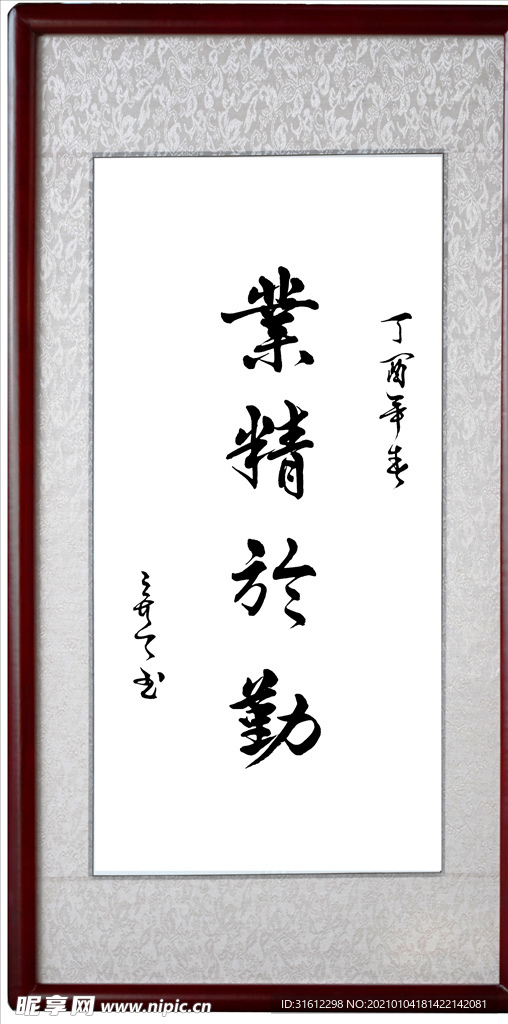 丁酉年春
業精於勤
书
昵享网 www.nipic.cn
ID:31612298 NO:20210104181422142081